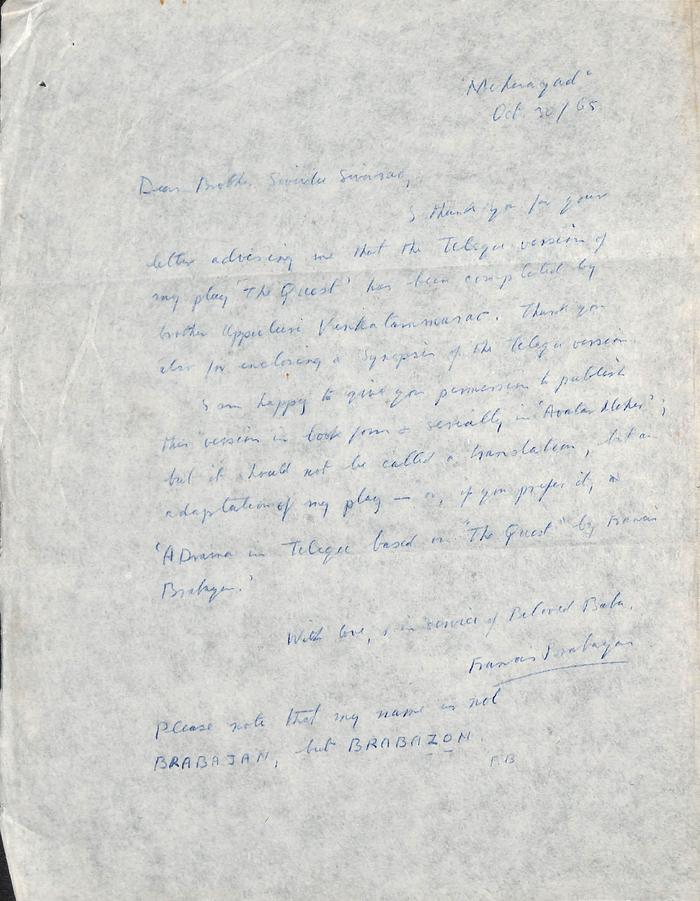 "Meherazad"
Oct 30/65
Dear Brother
I thank you for your
letter advising me that the Telegu version of
my play 'The Quest' has been completed by
brother Uppuluri Venkatammarao. Thank you
also for enclosing a Synopsis of the Telegu version.
I am happy to give you permission to publish
this version in book form & serially in "Avatar Meher";
but it should not be called a translation, but an
adaptation of my play — or, if you prefer it,
'A Drama in Telegu based on "The Quest" by Francis
Brabazon.'
With love, & in service of Beloved Baba.
Francis Brabazon
Please note that my name is not
BRABAJAN, but BRABAZON.
F.B